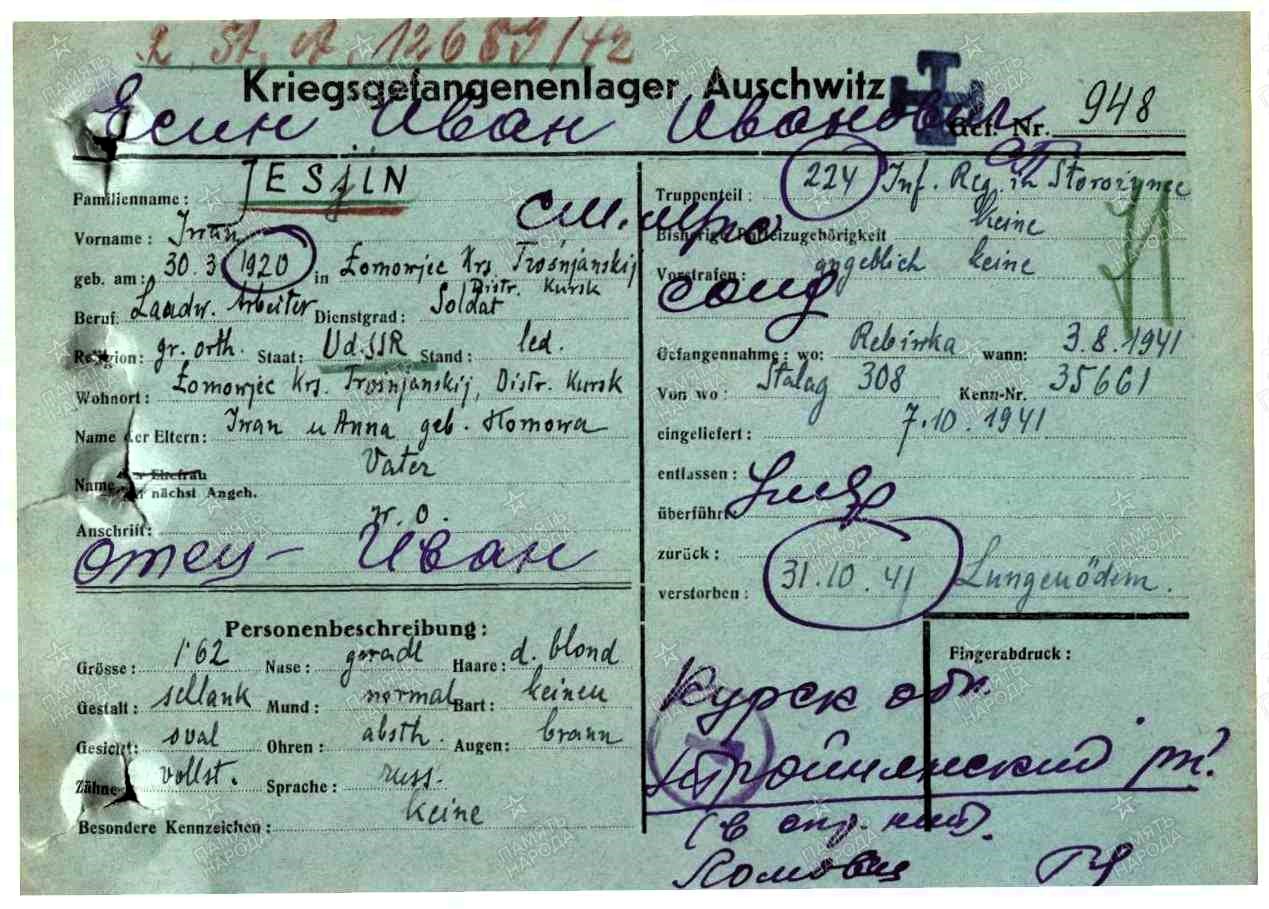 2. St. A 12689/42
Kriegsgefangenenlager Auschwitz
Есин Иван Иванович Gef. Nr. 948
Familienname: JESjIN
Vorname: Iwan
geb. am: 30.3 1920 in Łomowjec Krs Trośnjanskij
Distr. Kursk
Beruf: Landw. Arbeiter Dienstgrad: Soldat
Religion: gr. orth. Staat: UdSSR Stand: led.
Wohnort: Łomowjec Krs. Trośnjanskij, Distr. Kursk
Name der Eltern: Iwan u Anna geb. Homowa
Vater
Name der Ehefrau
der nächst Angeh.
Anschrift: w. o.
отец - Иван
Truppenteil: 224 Inf. Reg. in Storożynec
Bisherige Parteizugehörigkeit keine
Vorstrafen: angeblich keine
солд
Gefangennahme: wo: Rebinka wann: 3.8.1941
Von wo: Stalag 308 Kenn-Nr. 35661
eingeliefert: 7.10.1941
entlassen:
überführt:
zurück:
verstorben: 31.10.41 Lungenödem.
Personenbeschreibung:
Grösse: 1'62 Nase: gerade Haare: d. blond
Gestalt: schlank Mund: normal Bart: keinen
Gesicht: oval Ohren: absth. Augen: braun
Zähne: vollst. Sprache: russ.
Besondere Kennzeichen: keine
Fingerabduck:
Курск обл.
ПАМЯТЬ НАРОДА